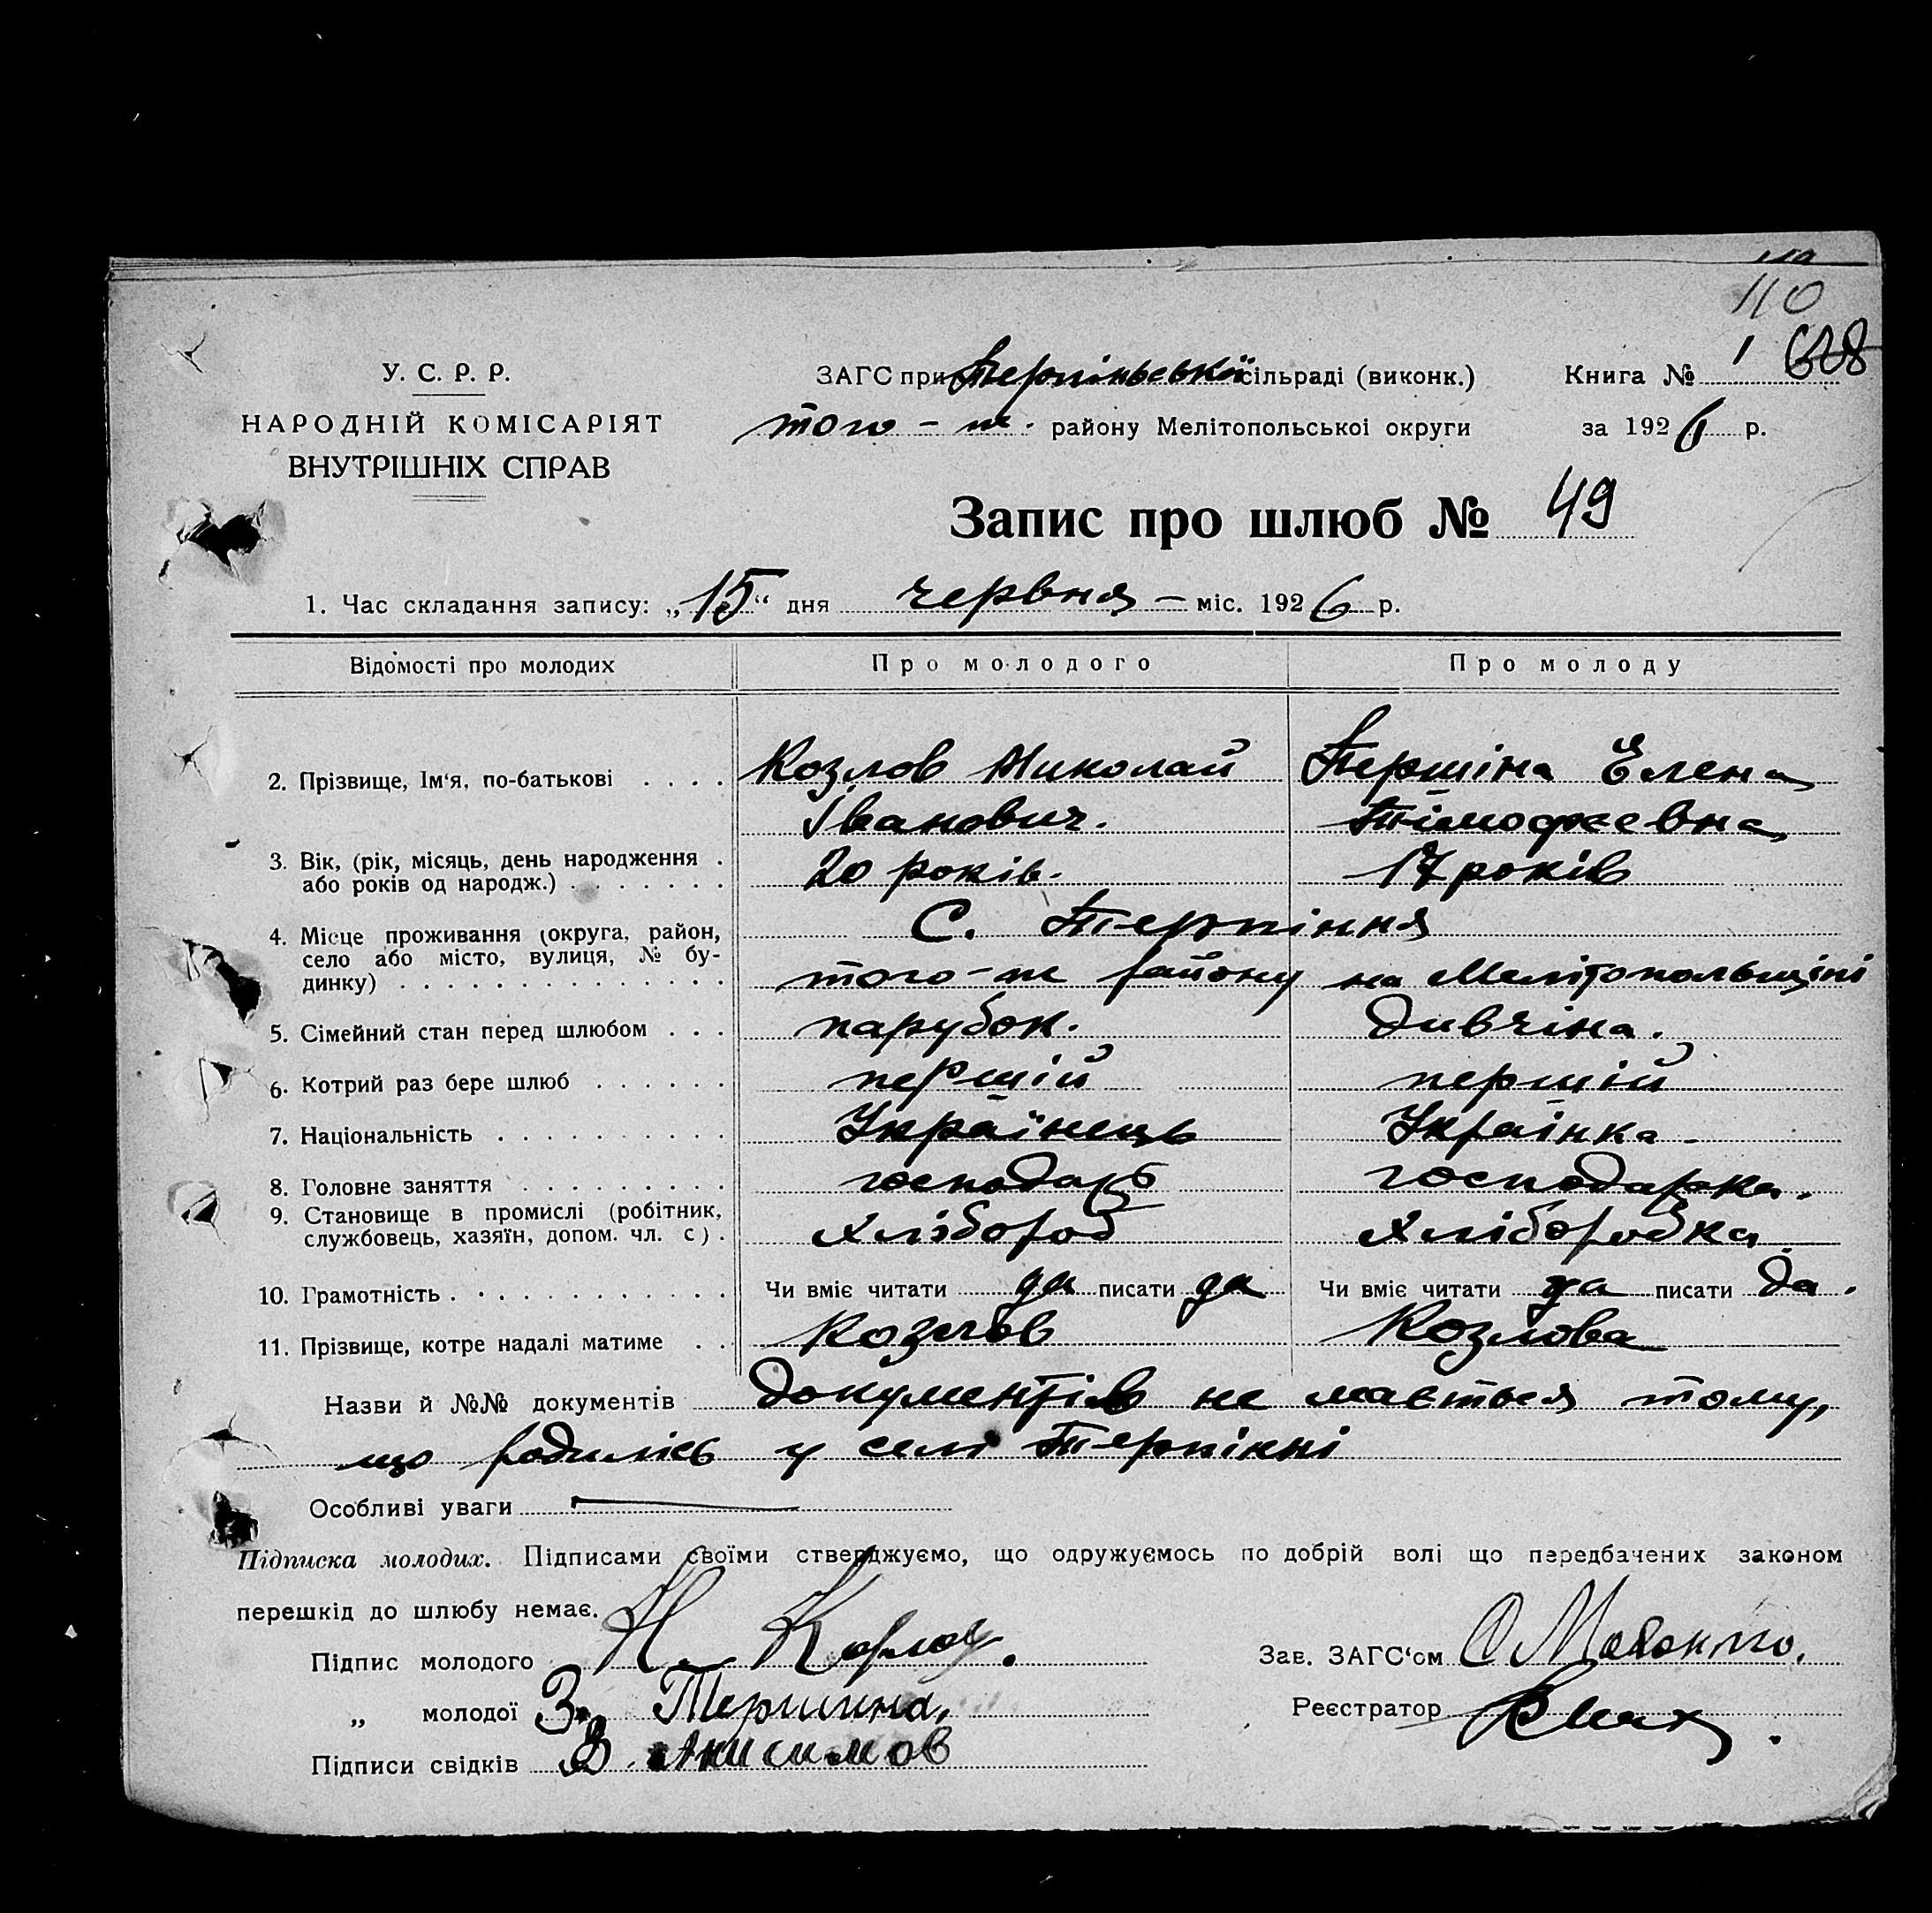 110
У. С. Р. Р.
НАРОДНІЙ КОМІСАРІЯТ
ВНУТРІШНІХ СПРАВ
ЗАГС при Терпіньевській сільраді (виконк.)
того-ж. району Мелітопольскоі округи
Книга № 1 608
за 1926 р.
Запис про шлюб № 49
1. Час складання запису: „15“ дня червня – міс. 1926 р.
Відомості про молодих
Про молодого
Про молоду
2. Прізвище, Ім‘я, по-батькові . . . . Козлов Николай Першіна Елена
Іванович. Тімофеевна
3. Вік, (рік, місяць, день народження .
або років од народж.) . . . . . . . 20 років. 17 років
4. Місце проживання (округа, район,
село або місто, вулиця, № бу-
динку) . . . . . . . . . . . . . .
С. Терпіння
того-ж району на Мелітопольщіні
5. Сімейний стан перед шлюбом . . . парубок. дивчіна.
6. Котрий раз бере шлюб . . . . . . першій першій
7. Національність . . . . . . . . . . Українець Українка.
8. Головне заняття . . . . . . . . . господарь господарка.
9. Становище в промислі (робітник,
службовець, хазяїн, допом. чл. с) . хлібороб хліборобка.
10. Грамотність . . . . . . . . . . . Чи вміє читати да писати да Чи вміє читати да писати да.
11. Прізвище, котре надалі матиме . . Козлов Козлова
Назви й №№ документів документів не маеться тому,
що родились у селі Терпінні
Особливі уваги
Підписка молодих. Підписами своїми стверджуємо, що одружуємось по добрій волі що передбачених законом
перешкід до шлюбу немає.
Підпис молодого Н.
„ молодої Першина,
Підписи свідків В. Анисимов
Зав. ЗАГС‘ом
Реєстратор